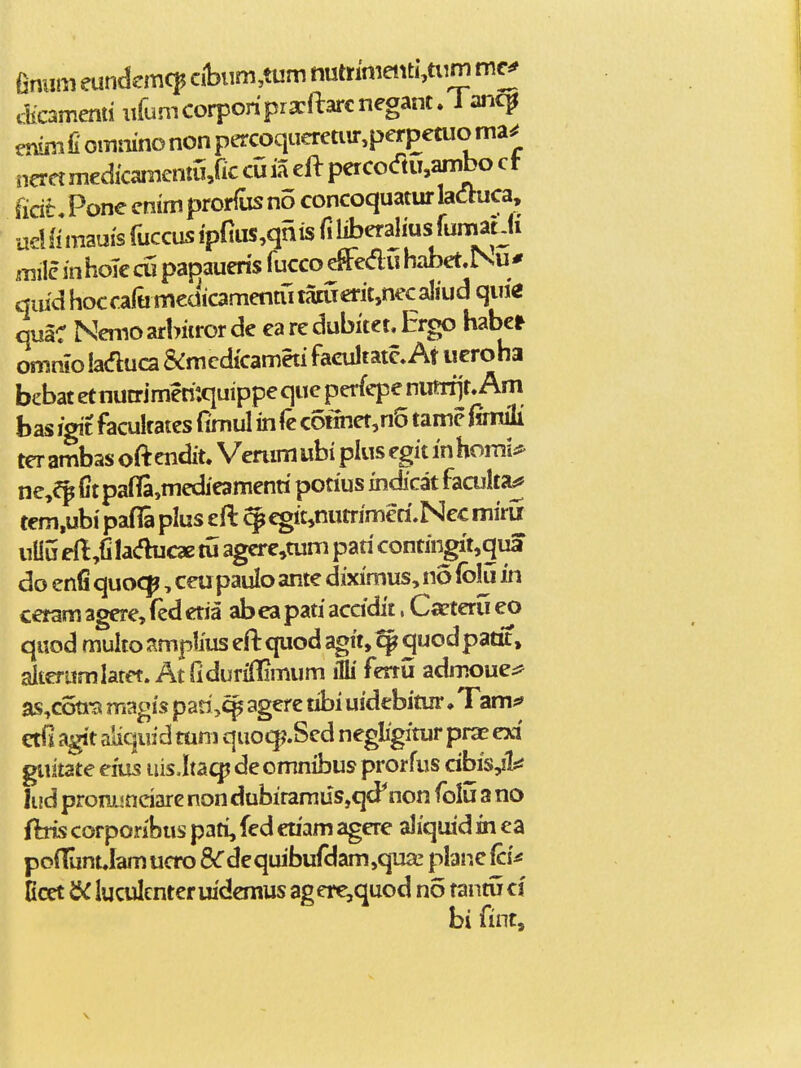 ſinum eundemq; cibum, tum nutrimenti, tum me⸗
dicamenti uſum corpori præſtare negant. Tanq̃
enim ſi omnino non percoqueretur, perpetuo ma⸗
neret medicamentũ, ſic cũ iã eſt percoctũ, ambo ef
ficit. Pone enim prorſus nõ concoquatur lactuca,
uel ſi mauis ſuccus ipſius, qñ is ſi liberalius ſumat̃ ſi
milẽ in hoĩe cũ papaueris ſucco effectũ habet. Nũ⸗
quid hoc caſu medicamentũ tãtũ erit, nec aliud quic
quã? Nemo arbitror de ea re dubitet. Ergo habet
omnĩo lactuca & medicamẽti facultatẽ. At uero ha
bebat et nutrimẽti: quippe que perſepe nutrijt. Am
bas igit̃ facultates ſimul in ſe cõtinet, nõ tamẽ ſimili
ter ambas oſtendit. Verum ubi plus egit in homi⸗
ne, q̃ ſit paſſa, medicamenti potius indicãt faculta⸗
tem, ubi paſſa plus eſt q̃ egit, nutrimẽti. Nec mirũ
ullũ eſt, ſi lactucæ tũ agere, tum pati contingit, quã
do enſi quoq;, ceu paulo ante diximus, nõ ſolũ in
ceram agere, ſed etiã ab ea pati accidit. Cæterũ eo
quod multo amplius eſt quod agit, q̃ quod patit̃,
alterum latet. At ſi duriſſimum illi ferrũ admoue⸗
as, cõtra magis pati, q̃ agere tibi uidebitur. Tam⸗
etſi agit aliquid tum quoq;. Sed negligitur præ exi
guitate eius uis. Itaq; de omnibus prorſus cibis, il⸗
lud pronunciare non dubitamus, qd' non ſolũ a no
ſtris corporibus pati, ſed etiam agere aliquid in ea
poſſunt. Iam uero & de quibuſdam, quæ plane ſci⸗
licet & luculenter uidemus agere, quod nõ tantũ ci
bi ſint,